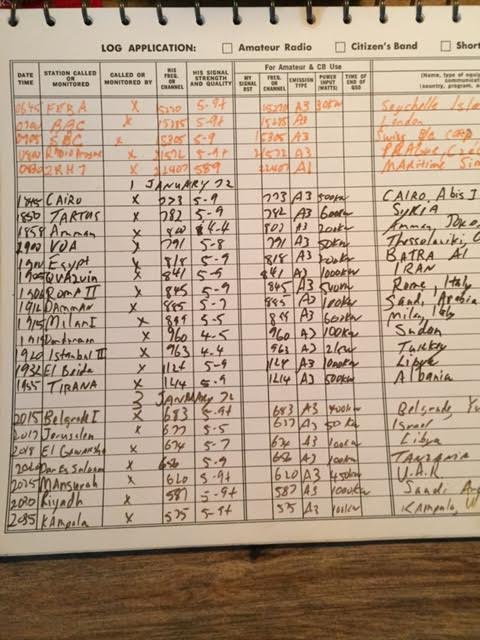 LOG APPLICATION: Amateur Radio Citizen's Band Short
For Amateur & CB Use
DATE TIME STATION CALLED OR MONITORED CALLED OR MONITORED BY HIS FREQ. OR CHANNEL HIS SIGNAL STRENGTH AND QUALITY MY SIGNAL RST FREQ. OR CHANNEL EMISSION TYPE POWER INPUT (WATTS) TIME OF END OF QSO (Name, type of equip communicat (country, program, a
0645 FEBA X 15270 5-9+ 15270 A3 30kw Seychelle Isla
0700 BBC X 15285 5-9+ A3 London
0705 SBC X 15305 5-9 15305 A3 Swiss B/c Corp
X 21572 5-9+ 21572 A3
X 22407 589 22407 A1 Maritime Sim
1 JANUARY 72
1845 CAIRO X 773 5-9 773 A3 500kw CAIRO, Abis I
1850 TARTUS X 782 5-9 782 A3 600kw SYRIA
1858 Amman X 4-4 A3 200kw Amman, Jord
1900 VOA X 791 5-8 791 A3 50kw Thessaloniki, G
Egypt X 818 5-9 818 A3 BATRA Al
X 841 5-9 841 A3 1000kw IRAN
1908 Roma II X 845 5-9 845 A3 540kw Rome, Italy
1912 Damman X 885 5-7 885 A3 100kw Saudi, Arabia
1915 Milan I X 899 5-5 899 A3 600kw Milan, Italy
X 960 4-5 960 A3 100kw Sudan
1920 Istanbul II X 963 4-4 963 A3 2kw Turkey
1932 El Beida X 1124 5-9 1124 A3 Libya
1935 TIRANA X 1214 5-9 1214 A3 500kw Albania
3 JANUARY 72
2015 Belgrade I X 683 5-9+ 683 A3 400kw Belgrade, Yu
2017 Jerusalem X 677 5-5 677 A3 50kw Israel
2018 X 674 5-7 674 A3 100kw Libya
2020 Dar Es Salaam X 656 5-9 656 A3 100kw TANZANIA
2025 Mansurah X 620 5-9+ 620 A3 450kw U.A.R
2030 Riyadh X 587 5-9+ 587 A3 1000kw Saudi Ara
2035 Kampala X 575 5-9+ 575 A3 100kw KAMPALA, U